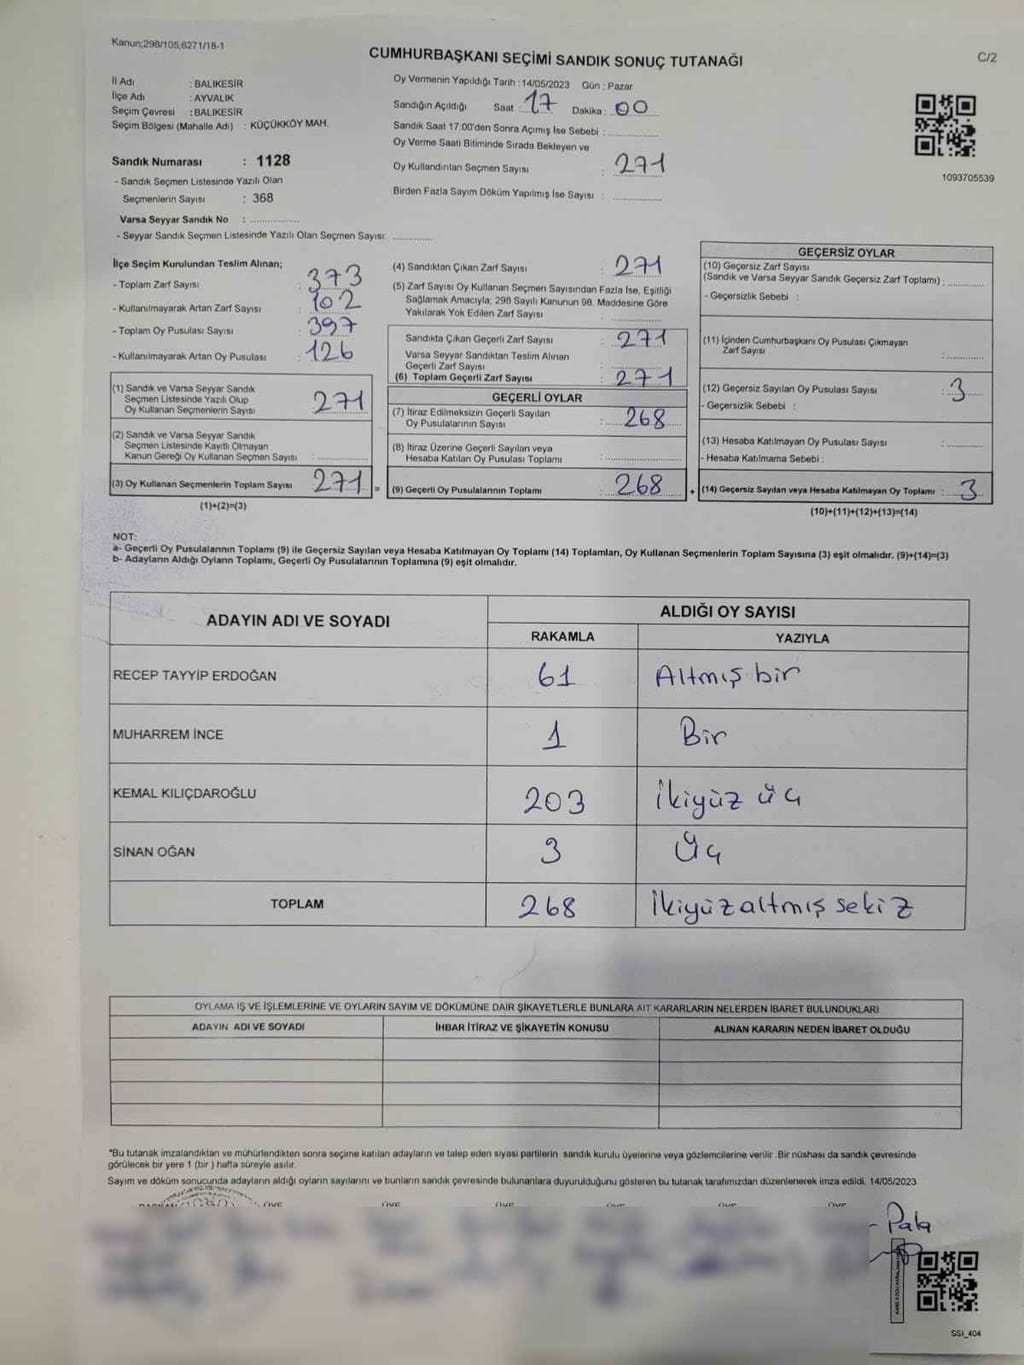 Kanun;298/105,6271/18-1
CUMHURBAŞKANI SEÇİMİ SANDIK SONUÇ TUTANAĞI
C/2
İl Adı : BALIKESİR
İlçe Adı : AYVALIK
Seçim Çevresi : BALIKESİR
Seçim Bölgesi (Mahalle Adı) : KÜÇÜKKÖY MAH.
Sandık Numarası : 1128
- Sandık Seçmen Listesinde Yazılı Olan
Seçmenlerin Sayısı : 368
Varsa Seyyar Sandık No : ..............
- Seyyar Sandık Seçmen Listesinde Yazılı Olan Seçmen Sayısı: ..............
Oy Vermenin Yapıldığı Tarih : 14/05/2023 Gün : Pazar
Sandığın Açıldığı Saat : 17 Dakika : 00
Sandık Saat 17:00'den Sonra Açımış İse Sebebi : ..............
Oy Verme Saati Bitiminde Sırada Bekleyen ve
Oy Kullandırılan Seçmen Sayısı : 271
Birden Fazla Sayım Döküm Yapılmış İse Sayısı : ..............
1093705539
İlçe Seçim Kurulundan Teslim Alınan;
- Toplam Zarf Sayısı : 373
- Kullanılmayarak Artan Zarf Sayısı : 102
- Toplam Oy Pusulası Sayısı : 397
- Kullanılmayarak Artan Oy Pusulası : 126
(1) Sandık ve Varsa Seyyar Sandık
Seçmen Listesinde Yazılı Olup
Oy Kullanan Seçmenlerin Sayısı : 271
(2) Sandık ve Varsa Seyyar Sandık
Seçmen Listesinde Kayıtlı Olmayan
Kanun Gereği Oy Kullanan Seçmen Sayısı : ..............
(3) Oy Kullanan Seçmenlerin Toplam Sayısı : 271 =
(1)+(2)=(3)
(4) Sandıktan Çıkan Zarf Sayısı : 271
(5) Zarf Sayısı Oy Kullanan Seçmen Sayısından Fazla İse, Eşitliği
Sağlamak Amacıyla; 298 Sayılı Kanunun 98. Maddesine Göre
Yakılarak Yok Edilen Zarf Sayısı : ..............
Sandıkta Çıkan Geçerli Zarf Sayısı : 271
Varsa Seyyar Sandıktan Teslim Alınan
Geçerli Zarf Sayısı
(6) Toplam Geçerli Zarf Sayısı : 271
GEÇERLİ OYLAR
(7) İtiraz Edilmeksizin Geçerli Sayılan
Oy Pusulalarının Sayısı : 268
(8) İtiraz Üzerine Geçerli Sayılan veya
Hesaba Katılan Oy Pusulası Toplamı : ..............
(9) Geçerli Oy Pusulalarının Toplamı : 268 +
GEÇERSİZ OYLAR
(10) Geçersiz Zarf Sayısı
(Sandık ve Varsa Seyyar Sandık Geçersiz Zarf Toplamı) : ..............
- Geçersizlik Sebebi :
(11) İçinden Cumhurbaşkanı Oy Pusulası Çıkmayan
Zarf Sayısı : ..............
(12) Geçersiz Sayılan Oy Pusulası Sayısı : 3
- Geçersizlik Sebebi :
(13) Hesaba Katılmayan Oy Pusulası Sayısı : ..............
- Hesaba Katılmama Sebebi :
(14) Geçersiz Sayılan veya Hesaba Katılmayan Oy Toplamı : 3
(10)+(11)+(12)+(13)=(14)
NOT:
a- Geçerli Oy Pusulalarının Toplamı (9) ile Geçersiz Sayılan veya Hesaba Katılmayan Oy Toplamı (14) Toplamları, Oy Kullanan Seçmenlerin Toplam Sayısına (3) eşit olmalıdır. (9)+(14)=(3)
b- Adayların Aldığı Oyların Toplamı, Geçerli Oy Pusulalarının Toplamına (9) eşit olmalıdır.
ADAYIN ADI VE SOYADI
ALDIĞI OY SAYISI
RAKAMLA YAZIYLA
RECEP TAYYİP ERDOĞAN 61 Altmış bir
MUHARREM İNCE 1 Bir
KEMAL KILIÇDAROĞLU 203 İkiyüz üç
SİNAN OĞAN 3 Üç
TOPLAM 268 İkiyüzaltmış sekiz
OYLAMA İŞ VE İŞLEMLERİNE VE OYLARIN SAYIM VE DÖKÜMÜNE DAİR ŞİKAYETLERLE BUNLARA AİT KARARLARIN NELERDEN İBARET BULUNDUKLARI
ADAYIN ADI VE SOYADI İHBAR İTİRAZ VE ŞİKAYETİN KONUSU ALINAN KARARIN NEDEN İBARET OLDUĞU
*Bu tutanak imzalandıktan ve mühürlendikten sonra seçime katılan adayların ve talep eden siyasi partilerin sandık kurulu üyelerine veya gözlemcilerine verilir .Bir nüshası da sandık çevresinde
görülecek bir yere 1 (bir ) hafta süreyle asılır.
Sayım ve döküm sonucunda adayların aldığı oyların sayılarını ve bunların sandık çevresinde bulunanlara duyurulduğunu gösteren bu tutanak tarafımızdan düzenlenerek imza edildi. 14/05/2023
ÜYE ÜYE ÜYE ÜYE ÜYE ÜYE
Pala
SSI_404